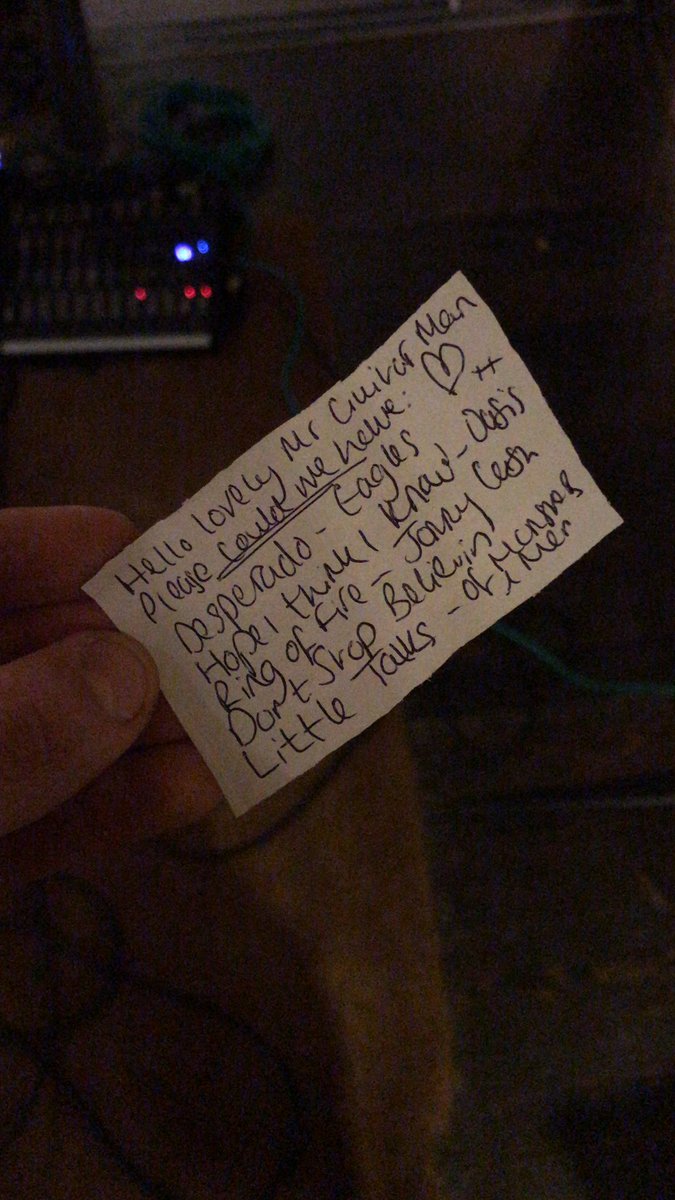 Hello lovely Mr Guitar Man
Please could we have: ♡ x
Desperado - Eagles
Hope I think I know - Oasis
Ring of Fire - Jonny Cash
Don't Stop Believin
Little Talks - of Monsters
& Men